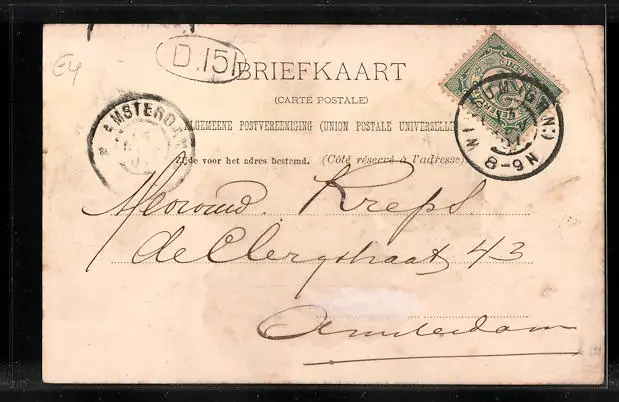 E4
D.151
BRIEFKAART
(CARTE POSTALE)
ALGEMEENE POSTVEREENIGING (UNION POSTALE UNIVERSELLE)
Zijde voor het adres bestemd. (Côté réservé à l'adresse)
AMSTERDAM
8-9N
Kreps.
de Clergstraat 43
Amsterdam